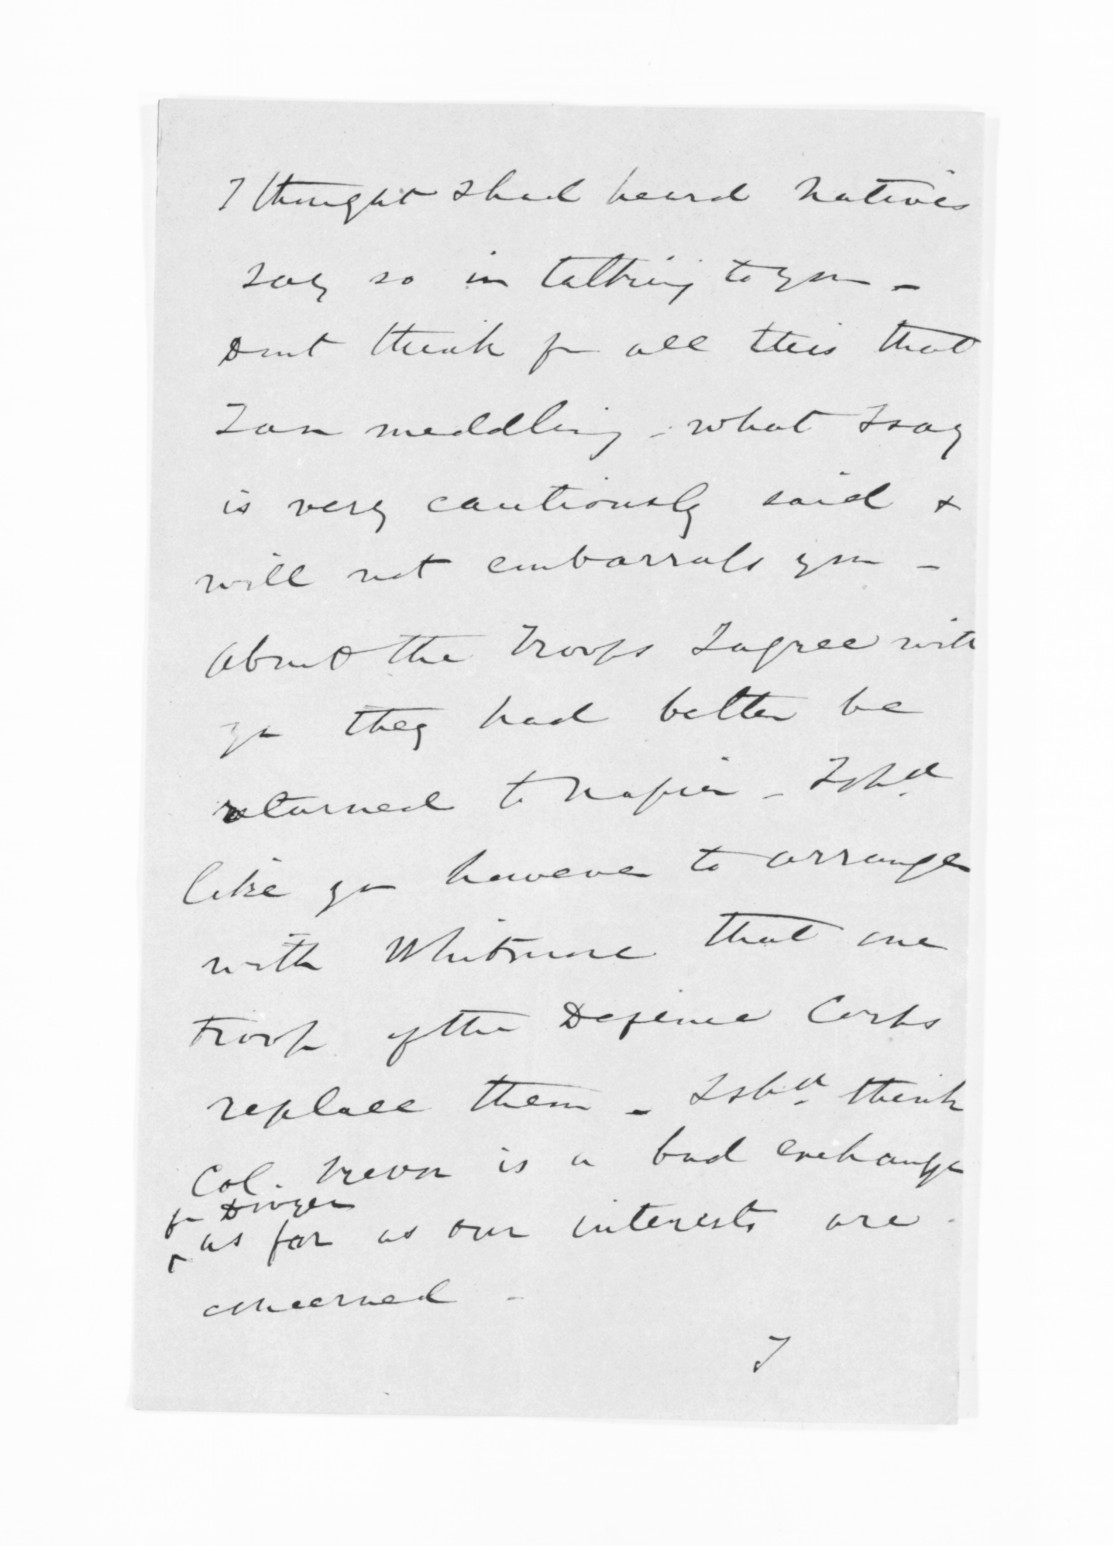 I thought I had heard Natives
say so in talking to you -
Dont think for all this that
I am meddling - what I say
is very cautiously said &
will not embarrass you -
About the Troops I agree with
you they had better be
returned to Napier - I shd
like you however to arrange
with Whitmore that one
troop of the Defence Corps
replace them - I shd think
Col. Trevor is a bad exchange
for Dwyer
as far as our interests are
concerned -
I